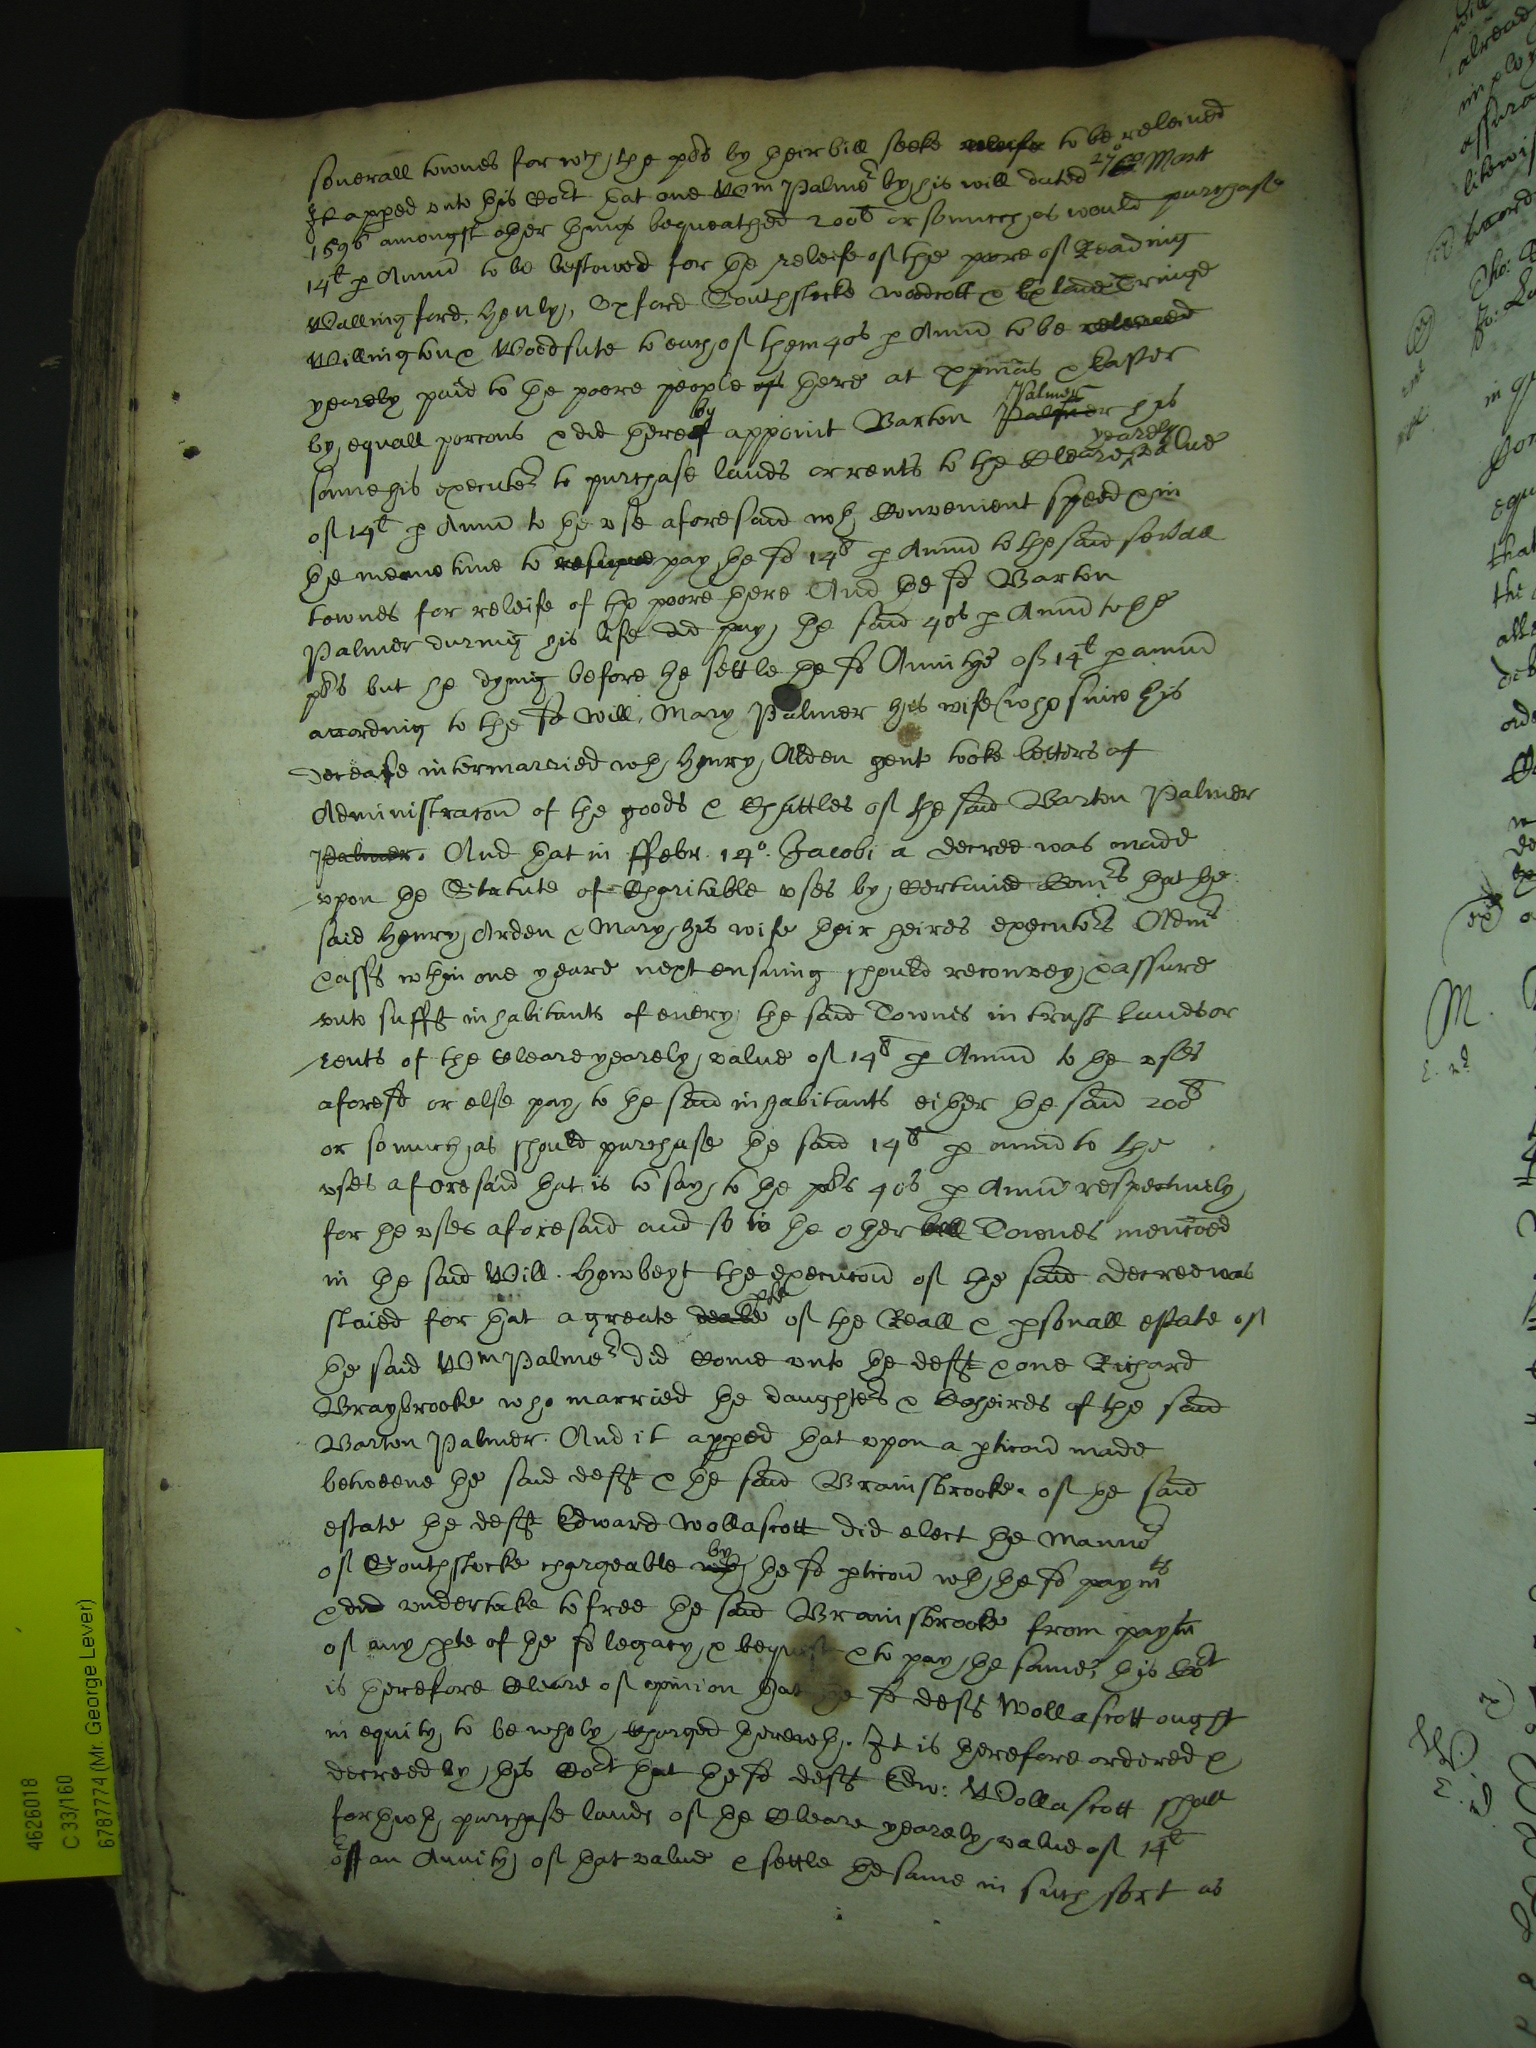 seuerall townes for wch the plts by their bill seeke releife to be releiued
It apped vnto this Cort that one Wm Palmer by his will dated 27o Martt
1596 amongst other things bequeathed 200l or so much as would purchase
14l p Annu to be bestowed for the releife of the poore of Reading
Wallingford, Henly, Oxford Southstocke Woodcott & Exlade Tringe
Willington & Woodsute to each of them 40s p Annu to be releiued
yearely paid to the poore people of there at Xpmas & Easter
by equall porcons & did thereby appoint Barton Palmer Palmer his
sonne his executor to purchase lands or rents to the Cleare yearely value
of 14l p Annu to the vse aforesaid wth Convenient speed & in
the meane time to pay the sd 14l p Annu to the said seuall
townes for releife of the poore there And the sd Barton
Palmer during his life did pay the said 40s p Annu to the
plts but he dying before he settle the sd Annitye of 14l p annu
according to the sd Will, Mary Palmer his wife (who since his
decease intermarried wth Henry Alden gent tooke letters of
Administracon of the goods & Chattles of the said Barton Palmer
Palmer. And that in ffebr. 14o. Jacobi a decree was made
vpon the Statute of Charitable vses by Certaine Comrs that the
said Henry Arden & Mary his wife their heires executors Admrs
& assis wthin one yeare next ensuing should reconvey & assure
vnto suffit inhabitants of euery the said Townes in trust lands or
rents of the Cleare yearely value of 14l p Annu to the vses
aforesd or else pay to the said inhabitants either the said 200l
or so much as should purchase the said 14l p annu to the
vses aforesaid that is to say to the plts 40s p Annu respectiuely
for the vses aforesaid and so to the other Townes mencoed
in the said Will. Howbeyt the execucon of the said decree was
staied for that a greate of the Reall & psonall estate of
the said Wm Palmer did Come vnto the deft & one Richard
Braybrooke who married the daughters & Coheires of the said
Barton Palmer. And it apped that vpon a pticon made
betweene the said deft & the said Brainsbrooke of the said
estate the deft Edward Wollascott did elect the Mannor
of Southstocke chargeable by the sd pticon wth the sd paymts
& did vndertake to free the said Brainsbrooke from paymt
of any pte of the sd legacy & bequest & to pay the same, this Cort
is therefore Cleare of opinion that the sd deft Wollascott ought
in equity to be wholy Charged therewth. It is therefore ordered &
decreed by this Cort that the sd deft Edw: Wollascott shall
forthwth purchase lands of the Cleare yearely value of 14l
or an Anuity of that value & settle the same in such sort as
4626018
C 33/160
67877774 (Mr. George Lever)